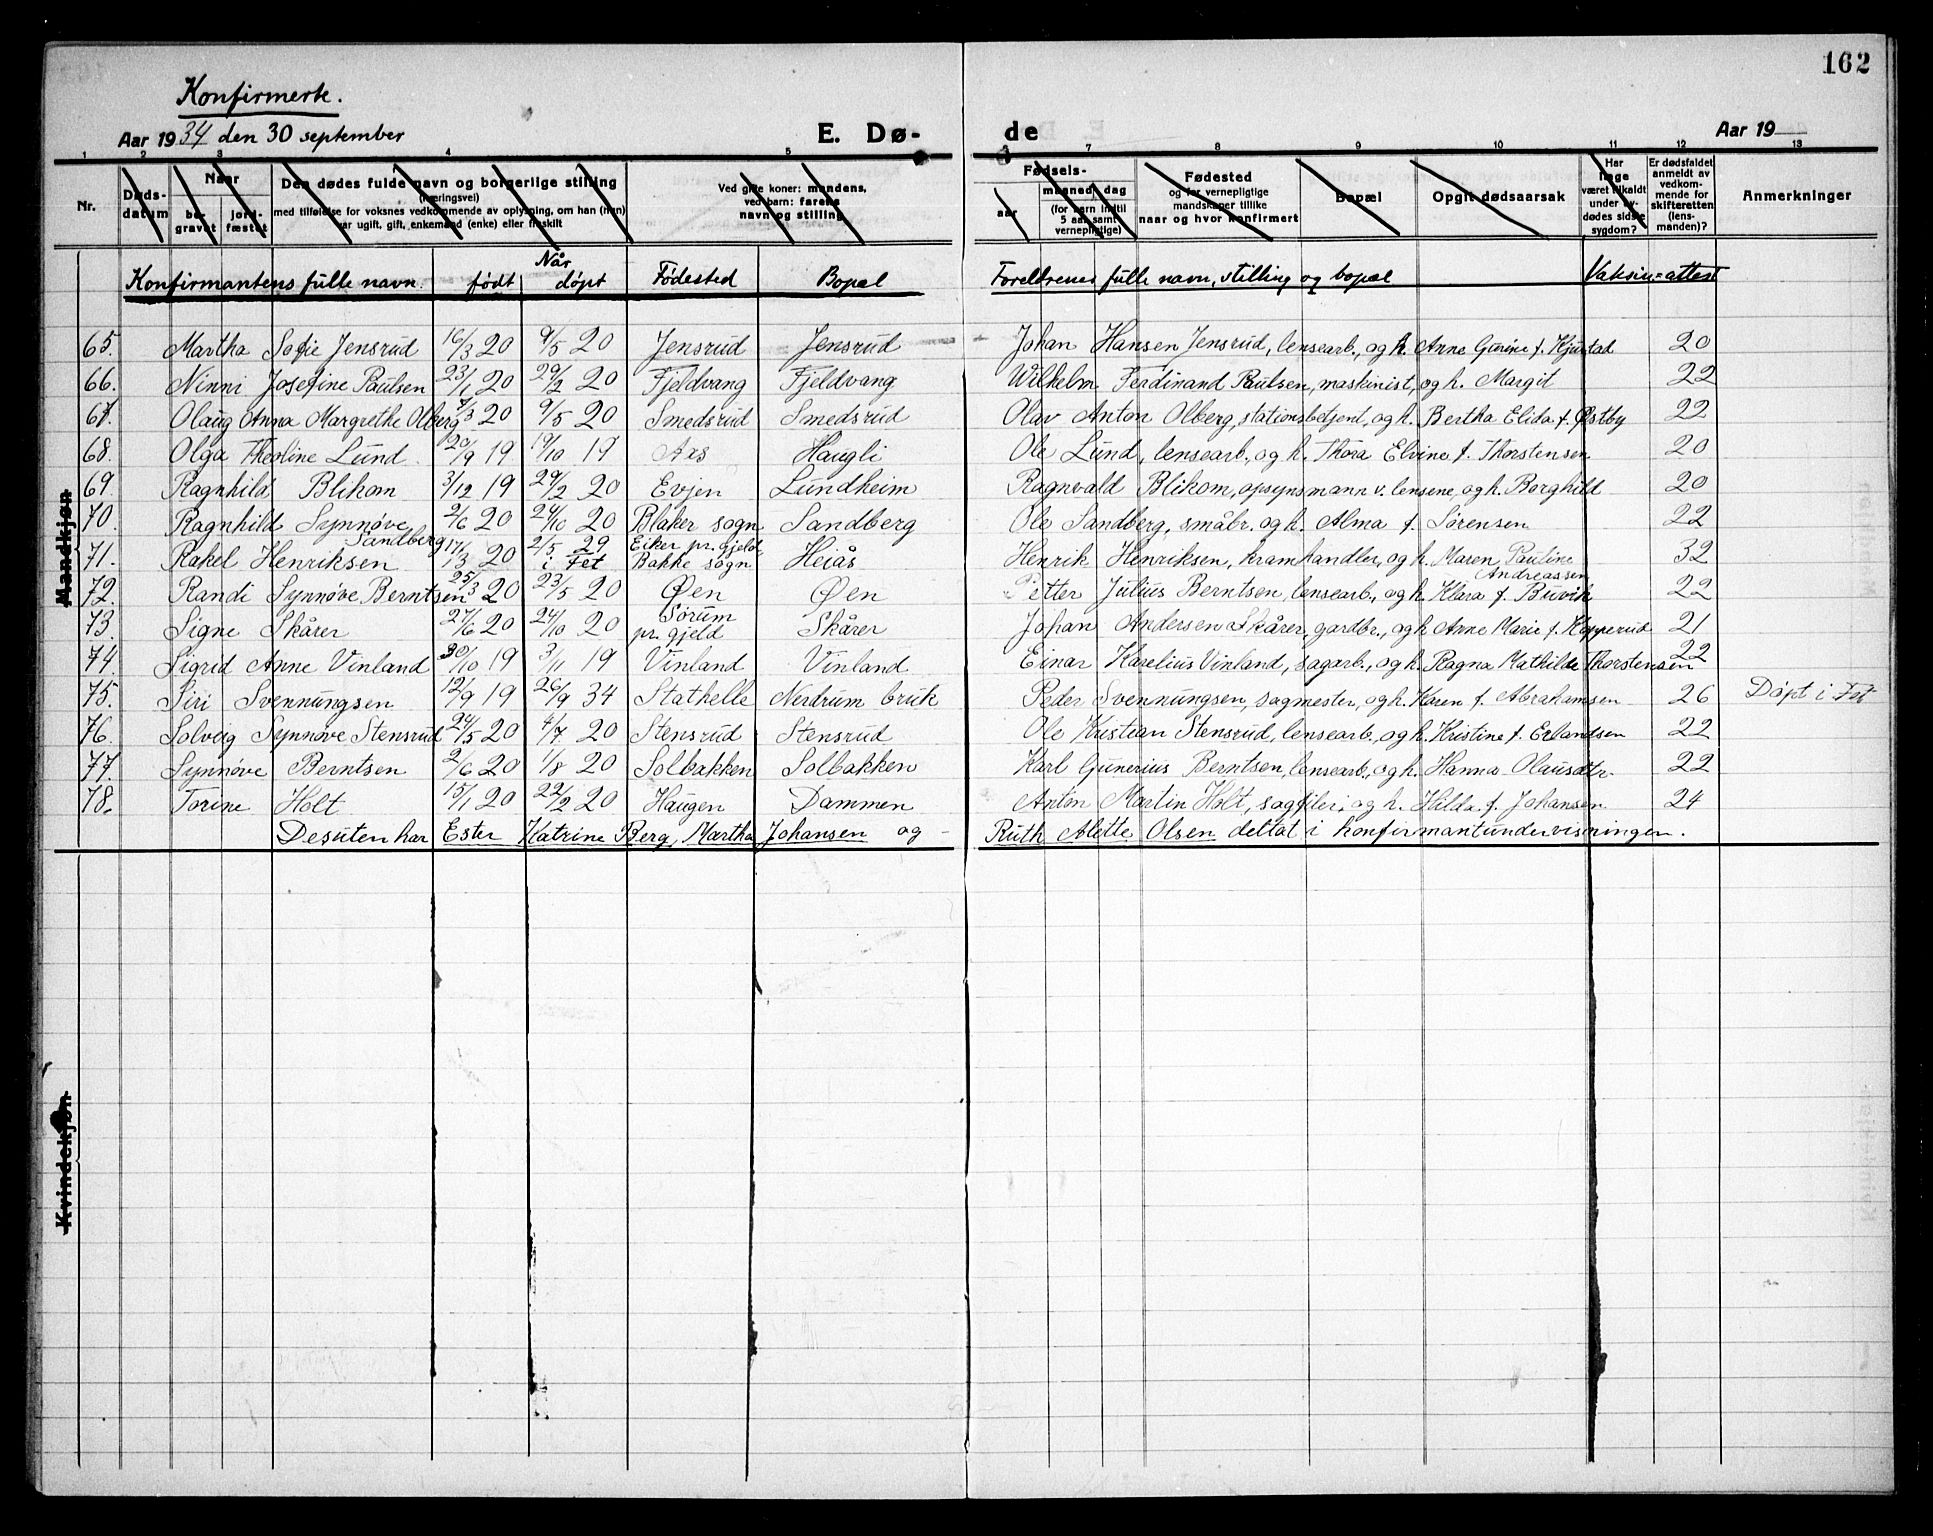 162
Konfirmerte.
Aar 1934 den 30 september E. Dø- de Aar 19
1 2 3 4 5 6 7 8 9 10 11 12 13
Nr. Døds-datum Naar be-gravet jord-fæstet Den dødes fulde navn og borgerlige stilling (næringsvei) med tilføielse for voksnes vedkommende av oplysning, om han (hun) var ugift, gift, enkemand (enke) eller fraskilt Ved gifte koner: mandens, ved barn: farens navn og stilling Fødsels- aar maaned, dag (for barn indtil 5 aar samt vernepligtige) Fødested og for vernepligtige mandskaper tillike naar og hvor konfirmert Bopæl Opgit dødsaarsak Har læge været tilkaldt under avdødes sidste sygdom? Er dødsfaldet anmeldt av vedkommende for skifteretten (lensmanden)? Anmerkninger
Når
Konfirmantens fulle navn. født døpt Fødested Bopæl Foreldrenes fulle navn, stilling og bopæl Vaksin=attest
65. Martha Sofie Jensrud 16/3 20 9/5 20 Jensrud Jensrud Johan Hansen Jensrud, lensearb., og h. Anne Gurine f. 20
66. Ninni Josefine Paulsen 23/1 20 29/2 20 Fjeldvang Fjeldvang Wilhelm Ferdinand Paulsen, maskinist, og h. Margit 22
67. Olaug Anna Margrethe Olberg 7/3 20 9/5 20 Smedsrud Smedsrud Olav Anton Olberg, stationsbetjent, og h. Bertha Elida f. Østby 22
68. Olga Theoline Lund 20/9 19 19/10 19 Aas Haugli Ole Lund, lensearb., og h. Thora Elvine f. Thorstensen 20
69. Ragnhild Blikom 3/12 19 29/2 20 Evjen Lundheim Ragnvald Blikom, opsynsmann v. lensene, og h. Borghild 20
70. Ragnhild Synnøve Sandberg 2/6 20 24/10 20 Blaker sogn Sandberg Ole Sandberg, småbr. og h. Alma f. Sørensen 22
71. Rakel Henriksen 17/3 20 2/5 29 i Fet Eiker pr.gjeld Bakke sogn Heiås Henrik Henriksen, kramhandler, og h. Maren Pauline Andreassen 32
72. Randi Synnøve Berntsen 25/3 20 23/5 20 Øen Øen Petter Julius Berntsen, lensearb., og h. Klara f. Buvik 22
73. Signe Skårer 27/6 20 24/10 20 Sørum pr. gjeld Skårer Johan Andersen Skårer, gardbr., og h Anne Marie f. Kopperud 21
74. Sigrid Anne Vinland 30/10 19 3/11 19 Vinland Vinland Einar Karelius Vinland, sagarb., og h. Ragna Mathilde Thorstensen 22
75. Siri Svennungsen 12/9 19 26/9 34 Stathelle Nerdrum bruk Peder Svennungsen, sagmester, og h. Karen f. Abrahamsen 26 Døpt i Fet
76. Solveig Synnøve Stensrud 24/5 20 4/7 20 Stensrud Stensrud Ole Kristian Stensrud, lensearb., og h. Kristine f. Erlandsen 22
77. Synnøve Berntsen 2/6 20 1/8 20 Solbakken Solbakken Karl Gunerius Berntsen, lensearb., og h. Hanna Olausdtr. 22
78. Torine Holt 15/1 20 22/2 20 Haugen Dammen Anton Martin Holt, sagfiler, og h. Hilda f. Johansen 24
Desuten har Ester Katrine Berg, Martha Johansen og – Ruth Alette Olsen deltat i konfirmantundervisningen.
Mandkjøn
Kvindekjøn